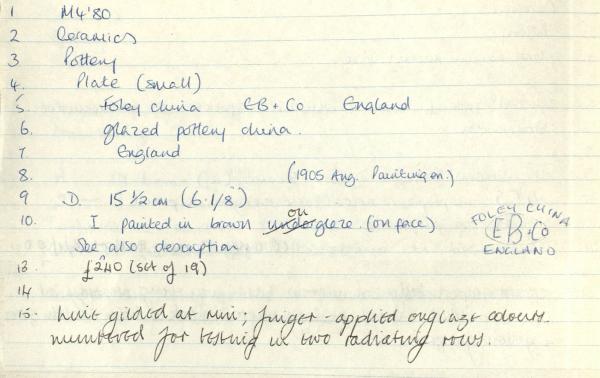 1 M4'80
2 Ceramics
3 Pottery
4. Plate (small)
5. Foley china EB+Co England
6. glazed pottery china.
7 England
8. (1905 Aug. Painting on.)
9 D. 15 1/2 cm (6.1/8")
on
10. I painted in brown underglaze. (on face)
See also description
FOLEY CHINA
EB+Co
ENGLAND
13. £240 (set of 19)
14
15. Line gilded at rim; finger-applied onglaze colours.
numbered for testing in two radiating rows.